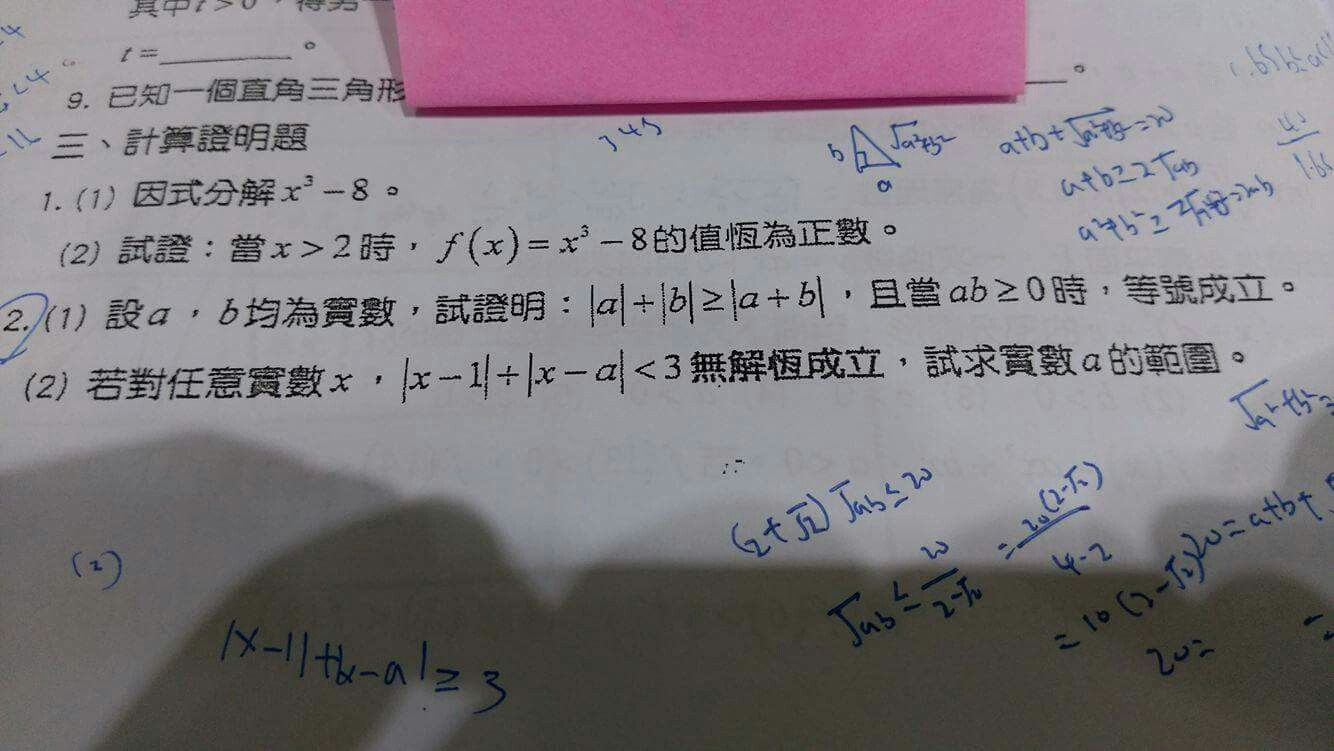 其中t>0，得另一
t=________。
9. 已知一個直角三角形
________。
三、計算證明題
3 4 5
1. (1) 因式分解x³－8。
(2) 試證：當x＞2時，f(x)＝x³－8的值恆為正數。
2. (1) 設a，b均為實數，試證明：|a|+|b|≥|a+b|，且當ab≥0時，等號成立。
(2) 若對任意實數x，|x－1|+|x－a|<3無解恆成立，試求實數a的範圍。
b √a²+b²
a
a+b+√a²+b²=20
a+b≥2√ab
(2+√2)√ab≤20
√ab≤20/2-√2
=20(2-√2)/4-2
=10(2-√2)
20=a+b+
20=
(2)
|x-1|+|x-a|≥3